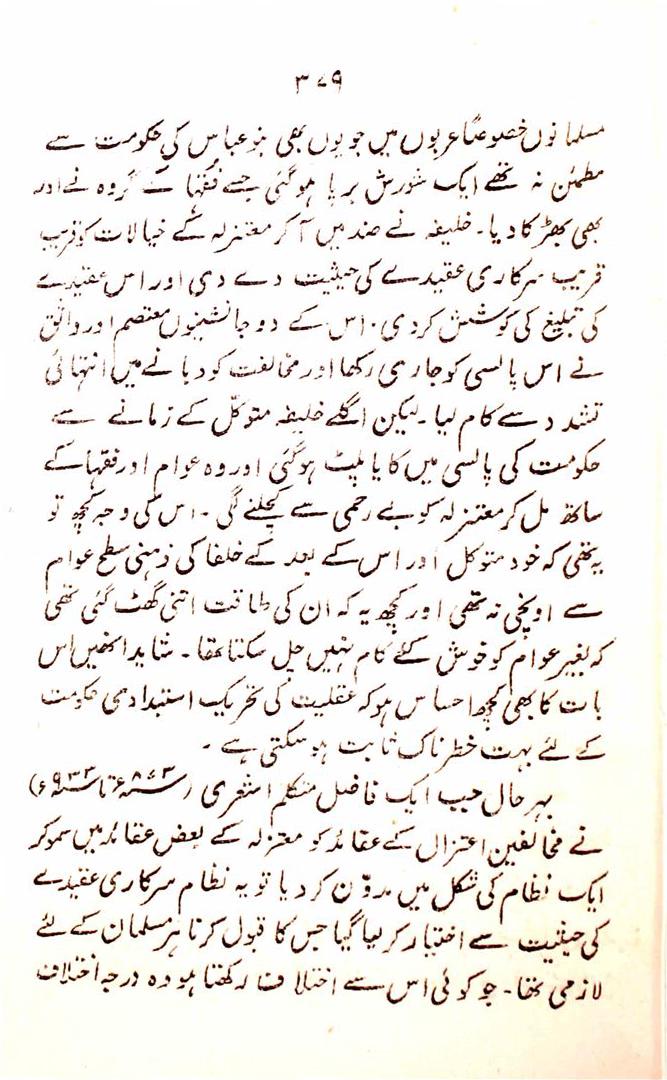 ۳۷۹
مسلمانوں خصوصاً عربوں میں جو یوں بھی بنو عباس کی حکومت سے
مطمئن نہ تھے ایک شورش برپا ہو گئی جسے فقہا کے گروہ نے اور
بھی بھڑکا دیا۔ خلیفہ نے ضد میں آ کر معتزلہ کے خیالات کو قریب
قریب سرکاری عقیدے کی حیثیت دے دی اور اس عقیدے
کی تبلیغ کی کوشش کر دی۔ اس کے دو جانشینوں معتصم اور واثق
نے اس پالسی کو جاری رکھا اور مخالفت کو دبانے میں انتہائی
تشدد سے کام لیا۔ لیکن اگلے خلیفہ متوکّل کے زمانے سے
حکومت کی پالسی میں کایا پلٹ ہو گئی اور وہ عوام اور فقہا کے
ساتھ مل کر معتزلہ کو بے رحمی سے کچلنے لگی۔ اس کی وجہ کچھ تو
یہ تھی کہ خود متوکل اور اس کے بعد کے خلفا کی ذہنی سطح عوام
سے اونچی نہ تھی اور کچھ یہ کہ ان کی طاقت اتنی گھٹ گئی تھی
کہ بغیر عوام کو خوش کئے کام نہیں چل سکتا تھا۔ شاید انھیں اس
بات کا بھی کچھ احساس ہو کہ عقلیت کی تحریک استبدادی حکومت
کے لئے بہت خطرناک ثابت ہو سکتی ہے۔
بہر حال جب ایک فاضل متکلم اشعری (۸۷۳ء تا ۹۳۳ء)
نے مخالفین اعتزال کے عقائد کو معتزلہ کے بعض عقائد میں سمو کر
ایک نظام کی شکل میں مدوّن کر دیا تو یہ نظام سرکاری عقیدے
کی حیثیت سے اختیار کر لیا گیا جس کا قبول کرنا ہر مسلمان کے لئے
لازمی تھا۔ جو کوئی اس سے اختلاف رکھتا ہو وہ درجہ اختلاف